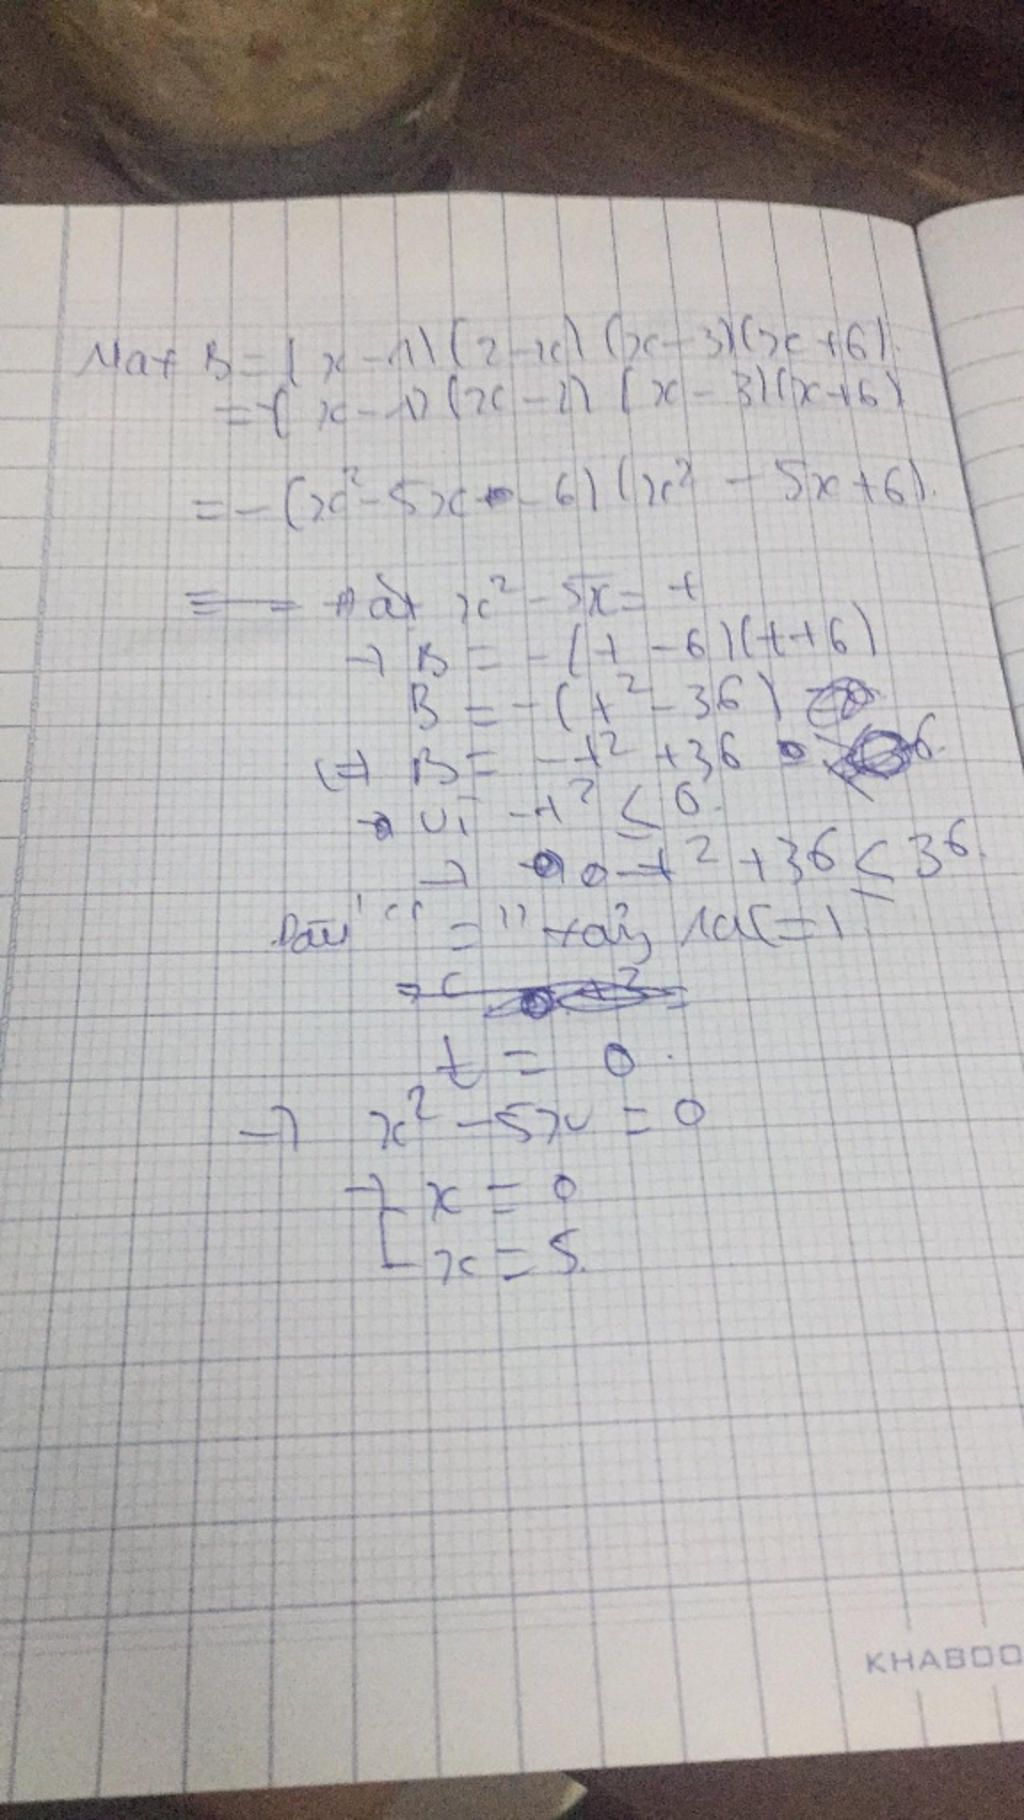 Max B = (x - 1)(2 - x)(x - 3)(x + 6)
= -(x - 1)(x - 2)(x - 3)(x + 6)
= - (x² - 5x - 6)(x² - 5x + 6).
Đặt x² - 5x = t
→ B = - (t - 6)(t + 6)
B = - (t² - 36)
(=) B = - t² + 36
Vì - t² ≤ 0
→ - t² + 36 ≤ 36.
Dấu " = " xảy ra (=)
t = 0.
→ x² - 5x = 0
→ [ x = 0
[ x = 5.
KHABOO